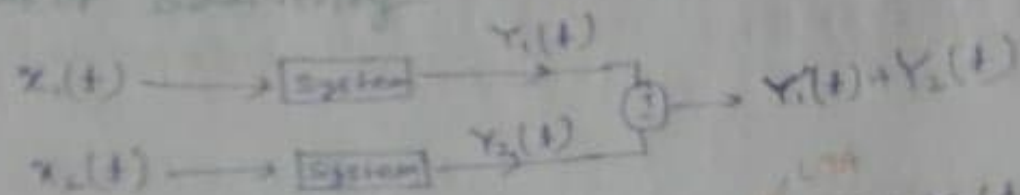 x₁(t) System Y₁(t)
+ Y₁(t) + Y₂(t)
x₂(t) System Y₂(t)